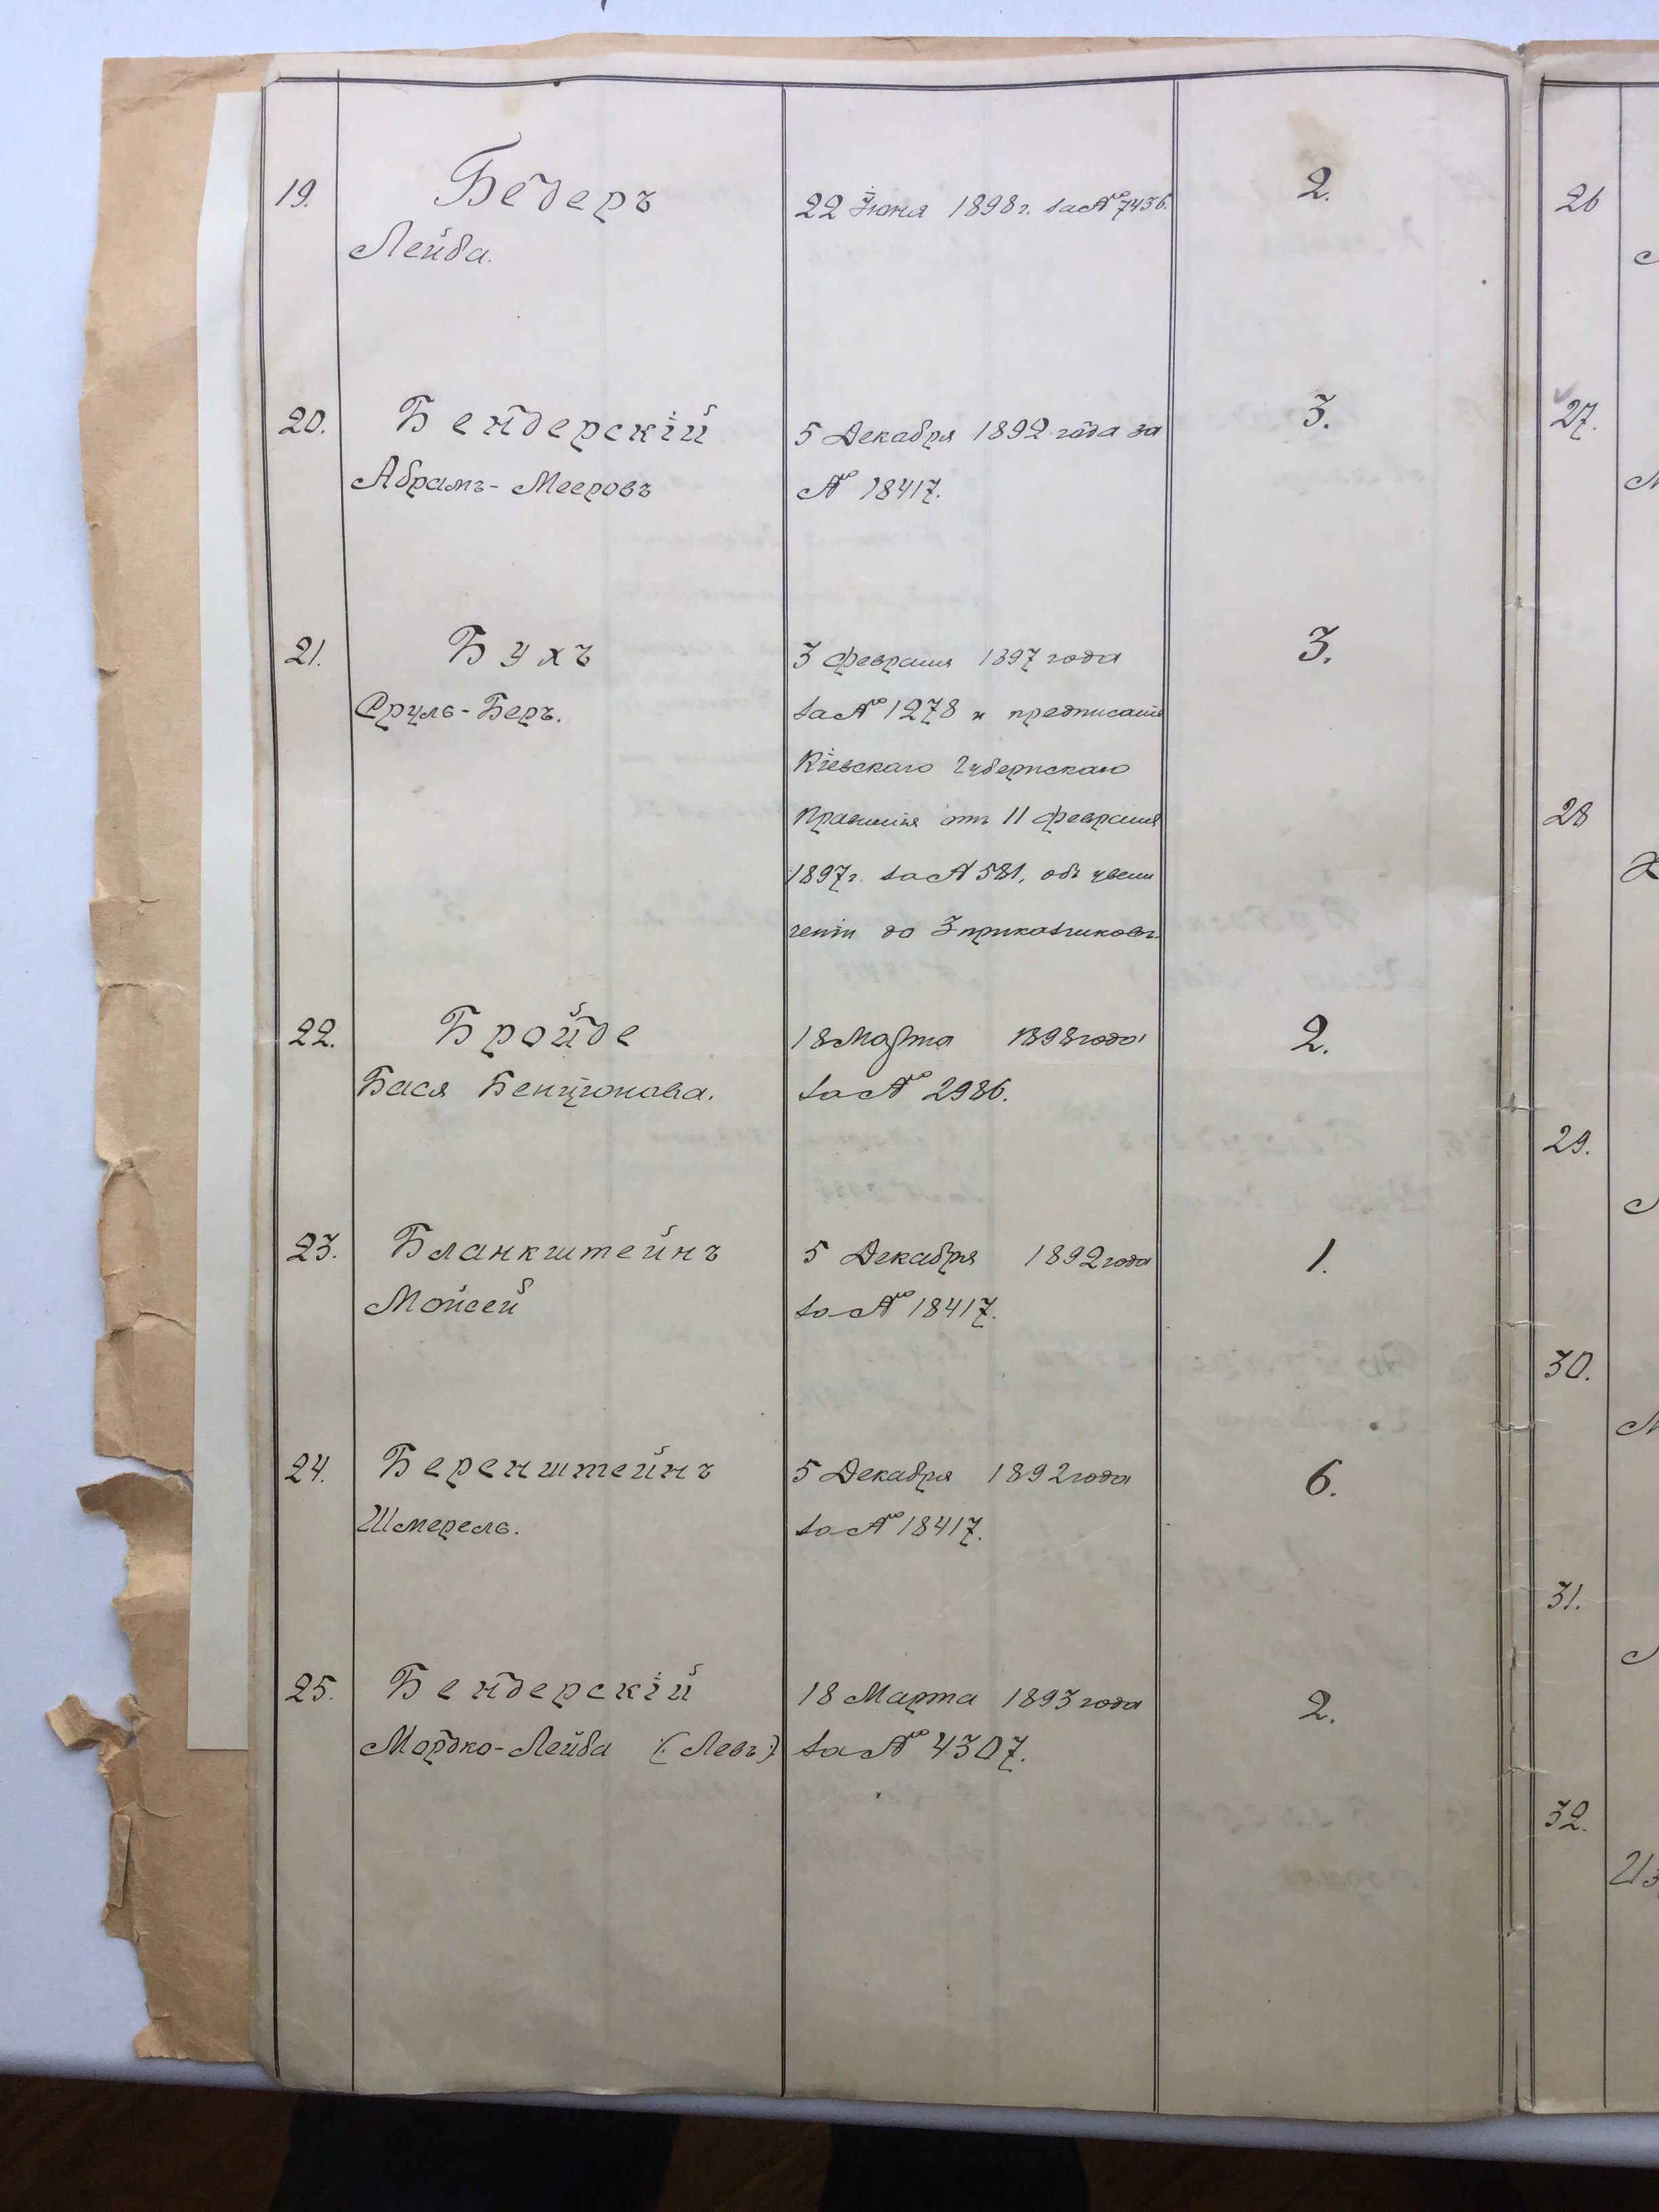 19.
Бедеръ
Лейба.
22 Іюня 1898г. за № 7436.
2.
20.
Бендерскій
Абрамъ-Мееровъ
5 Декабря 1892 года за
№ 18417.
3.
21.
Бухъ
Сруль-Беръ.
3 февраля 1897 года
за № 1278 и предписаніе
Кіевскаго Губернскаго
Правленія отъ 11 февраля
1897г. за № 581, объ увели
ченіи до 3 приказчиковъ.
3.
22.
Бройде
Бася Бенціонова.
18 Марта 1898 года
за № 2986.
2.
23.
Бланкштейнъ
Мойсей
5 Декабря 1892 года
за № 18417.
1.
24.
Беренштейнъ
Шмерель.
5 Декабря 1892 года
за № 18417.
6.
25.
Бендерскій
Мордко-Лейба (: Левъ :)
18 Марта 1893 года
за № 4307.
2.
26
27.
28
29.
30.
31.
32.